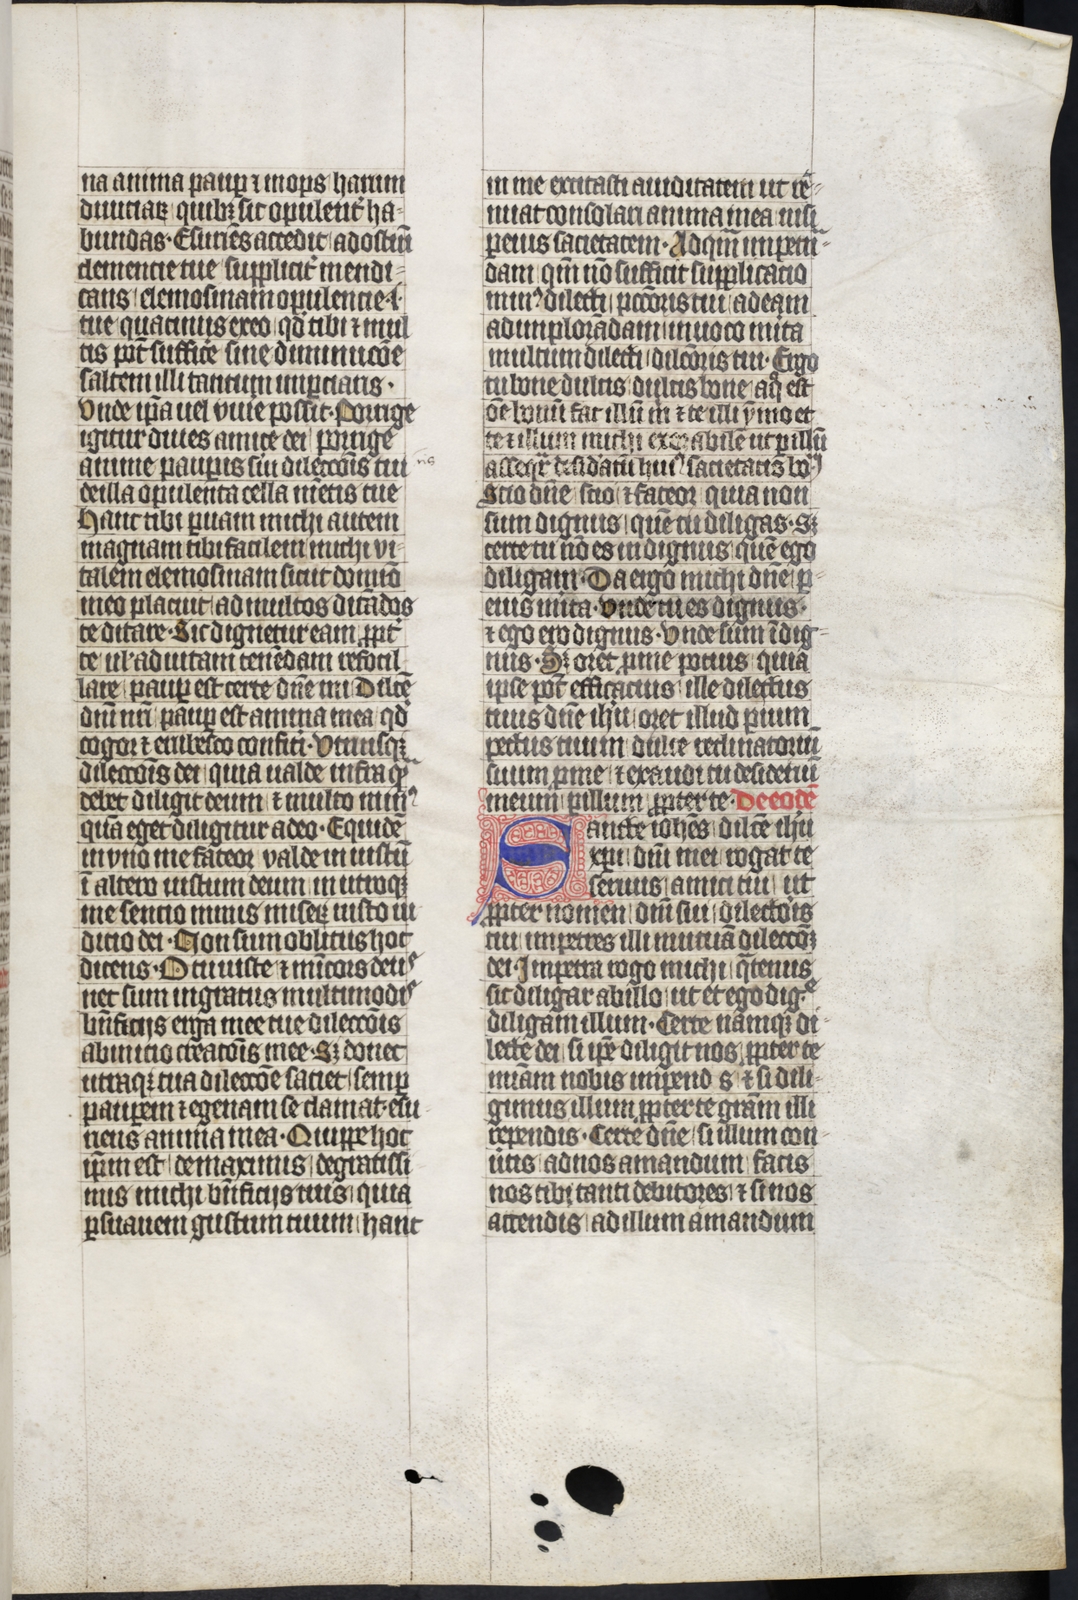 na anima paup̲ ⁊ inops harum
diuiciaꝝ quibꝫ sic opulent̾ ha-
bundas· Esuriēs accedit ad ostiū
clemencie tue supplicit̾ mendi-
cans elemosinam opulencie
tue quatinus ex eo qd̄ tibi ⁊ mul
tis pōt suffic̾e sine diminucōe
saltem illi tantum imperciaris·
Unde ip̄a uel viu̾e possit· Porrige
igitur diues amice dei porrige
anime pauperis sui dilectōis tui
de illa opulenta cella mētis tue
Hanc tibi ꝑuam michi autem
magnam tibi facilem michi vi-
talem elemosinam sicut domīo
meo placuit ad multos ditādos
te ditare· Sic dignetur eam ꝓpt̾
te ul' ad uitam tenēdam refocil
lare paup̲ est certe dn̄e mi dilc̄e
dn̄i mī paup̲ est anima mea qd̄
cogor ⁊ erubesco confiteri· Utriusqꝫ
dilectōis dei quia ualde infra qͣ
debet diligit deum ⁊ multo minꝰ
quā eget diligitur a deo· Equidē
in vno me fateor valde iniustū
ī altero iustum deum in utroqꝫ
me sencio nimis miseꝝ iusto iu
dicio dei· Non sum oblitus hoc
dicens· O tu iuste ⁊ mīcors deus
nec sum ingratus multimodis
bn̄ficijs erga me e tue dilectōis
ab inicio creatōis mee· Sꝫ donec
utraqꝫ tua dilectōe saciet semp̲
pauꝑem ⁊ egenam se clamat esu-
riens anima mea· Quippe hoc
ip̄m est de maximis de gratissi-
mis michi bn̄ficijs tuis quia
ꝑ suauem gustum tuum hanc
in me excitasti auiditatem ut rē-
nuat consolari anima mea nisi
ꝑ eius sacietatem· Ad qm̄ impetrā-
dam qm̄ nō sufficit supplicacio
dilecti pctōris tui ad eam
ad implorādam inuoco mīta
multum dilecti dilectōris tui· Ergo
tu bone dulcis dulcis bone a qͦ est
oē bonū fac illū m̄ ⁊ te illi ymo et
te ⁊ illum michi exorabilē ut ꝑ illū
asseqͣr desid̾atū huiꝰ sacietatis
Scio dn̄e scio ⁊ fateor quia non
sum dignus quē tu diligas· Sꝫ
certe tu nō es indignus quē ego
diligam· Da ergo michi dn̄e ꝑ-
eius mīta· Unde tu es dignus·
⁊ ego ero dignus· Unde sum īdig-
nus· Sꝫ oret ꝓ me pocius quia
ipse pōt efficacius ille dilectus
tuus dn̄e ih̄u oret illud pium
pectus tuum dulce reclinatoriū
suum ꝓ me ⁊ exaudi tu desideriū
meum ꝑ illum ꝓpter te· De eodē
Sancte ioh̄es dilc̄e ih̄u
xp̄i dn̄i mei rogat te
seruus amici tui ut
ꝓpter nomen dn̄i sui dilectōis
tui impetres illi mutuā dilectōꝫ
dei· Impetra rogo michi qͣtenus
sic diligar ab illo ut et ego digͤ
diligam illum· Certe namqꝫ di-
lecte dei si ip̄e diligit nos ꝓpter te
nimiam nobis impend s ⁊ si dili-
gimus illum ꝓpter te gr̄am illi
rependis· Certe dn̄e si illum con-
ū̾tis ad nos amandum facis
nos tibi tanti debitores ⁊ si nos
accendis ad illum amandum